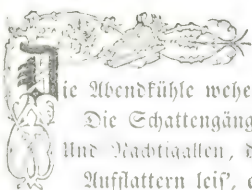 Die Abendkühle wehe
Die Schattengäng
Und Nachtigallen,
Aufflattern leis',